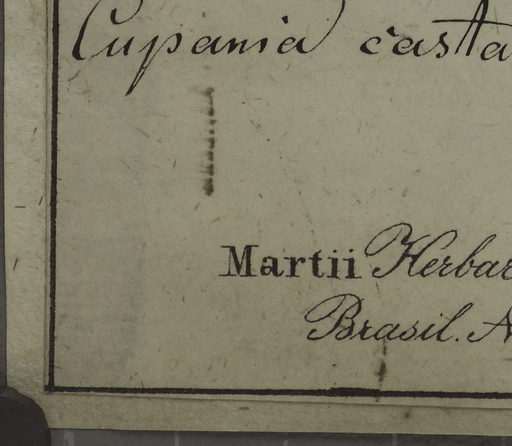 Cupania casta
Martii Herbar
Brasil. N